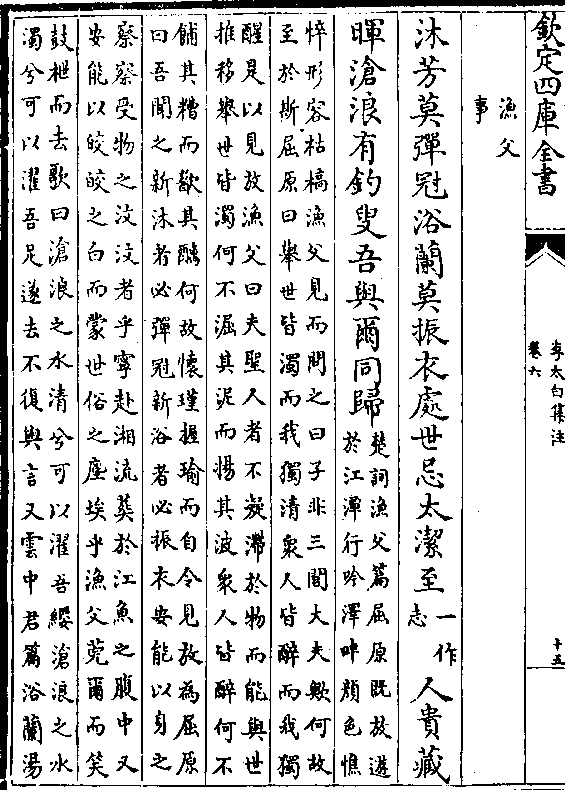 欽定四庫全書
李太白集注
卷六
十五
漁父
事
沐芳莫彈冠浴蘭莫振衣處世忌太潔至一作志人貴藏
暉滄浪有釣叟吾與爾同歸
楚詞漁父篇屈原既放遊
於江潭行吟澤畔顔色憔
悴形容枯槁漁父見而問之曰子非三閭大夫歟何故
至於斯屈原曰舉世皆濁而我獨清衆人皆醉而我獨
醒是以見放漁父曰夫聖人者不凝滯於物而能與世
推移舉世皆濁何不淈其泥而揚其波衆人皆醉何不
餔其糟而歠其醨何故懷瑾握瑜而自令見放為屈原
曰吾聞之新沐者必彈冠新浴者必振衣安能以身之
察察受物之汶汶者乎寧赴湘流葬於江魚之腹中又
安能以皎皎之白而蒙世俗之塵埃乎漁父莞爾而笑
鼓枻而去歌曰滄浪之水清兮可以濯吾纓滄浪之水
濁兮可以濯吾足遂去不復與言又雲中君篇浴蘭湯